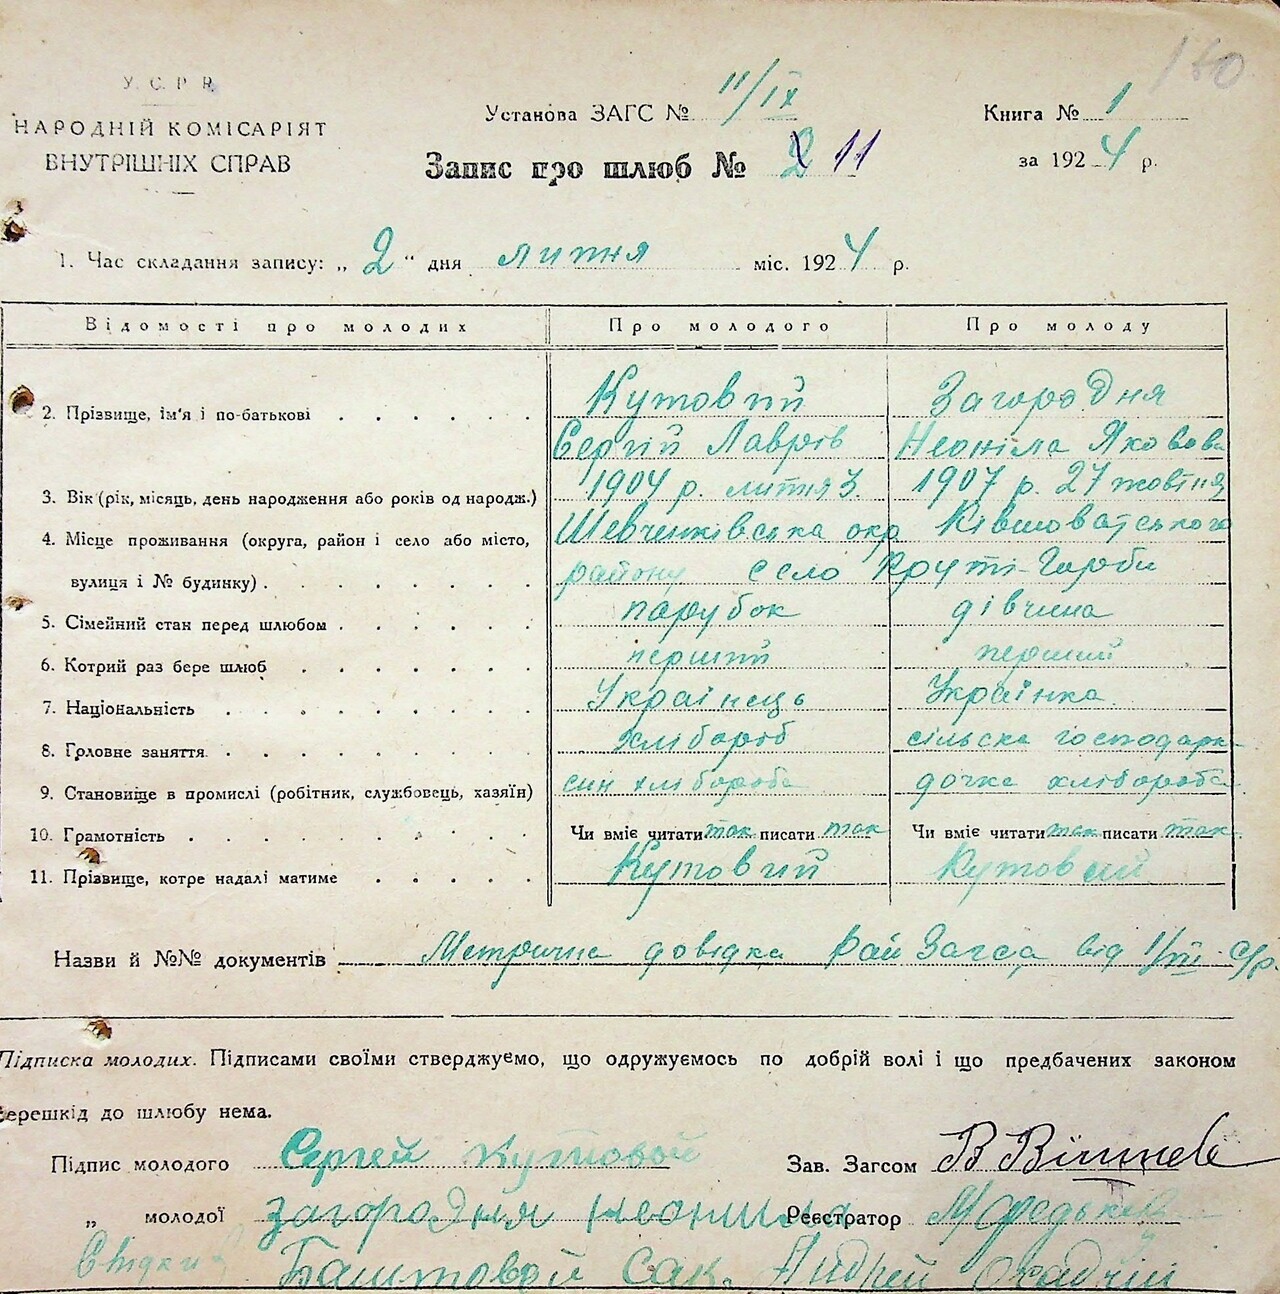 160
У. С. Р. Р.
НАРОДНІЙ КОМІСАРІЯТ
ВНУТРІШНІХ СПРАВ
Установа ЗАГС № 11/IX
Книга № 1
Запис про шлюб № 2 11
за 1924 р.
1. Час складання запису: „ 2 “ дня липня міс. 1924 р.
Відомості про молодих Про молодого Про молоду
Кутовий Загородня
2. Прізвище, ім'я і по-батькові
Сергій Лаврів Неоніла Яковова
3. Вік (рік, місяць, день народження або років од народж.) 1904 р. липня 3. 1907 р. 27 жовтня
4. Місце проживання (округа, район і село або місто, Шевченківська окр Ківшоватського
вулиця і № будинку) району село Круті-Горби
5. Сімейний стан перед шлюбом парубок дівчина
6. Котрий раз бере шлюб перший перший
7. Національність Українець Українка
8. Головне заняття хлібороб сільска господарк-
9. Становище в промислі (робітник, службовець, хазяїн) син хлібороба дочка хлібороба
10. Грамотність Чи вміє читати так писати так Чи вміє читати так писати так
11. Прізвище, котре надалі матиме Кутовий Кутовий
Назви й №№ документів Метрична довідка РайЗагса від 1/VII с/р.
Підписка молодих. Підписами своїми стверджуємо, що одружуємось по добрій волі і що предбачених законом
перешкід до шлюбу нема.
Підпис молодого Сергей Кутовой Зав. Загсом
„ молодої Загородня Неонила Реєстратор
Свідки Баштовой Сак. Андрей